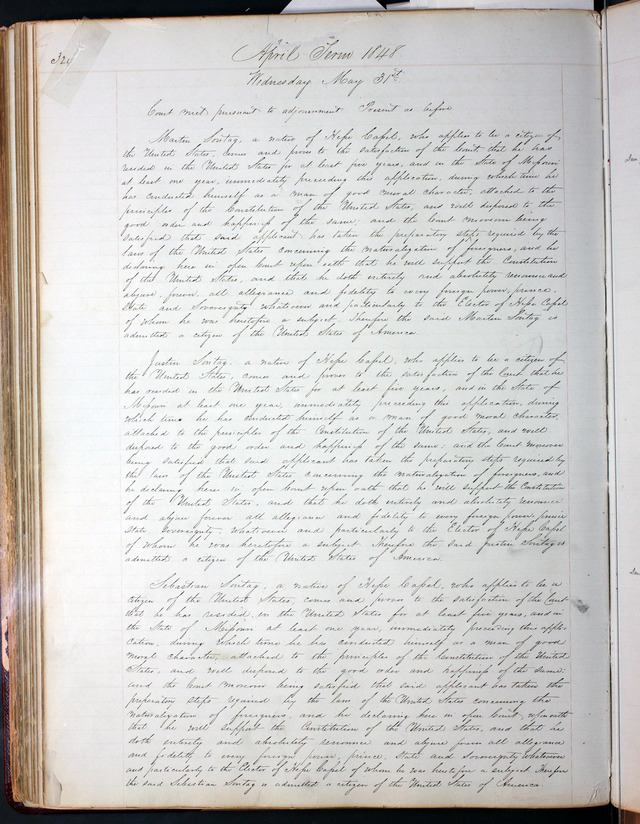 April Term 1848
Wednesday May 31st
Court met pursuant to adjournment Present as before
Martin Sontag, a native of Hefse Cafsel, who applies to be a citizen of
the United States, comes and proves to the satisfaction of the Court that he has
resided in the United States for at least five years, and in the State of Mifsouri
at least one year, immediately preceding this application, during which time he
has conducted himself as a man of good moral character, attached to the
principles of the Constitution of the United States, and well disposed to the
good order and happinefs of the same, and the Court moreover being
satisfied that said applicant has taken the preparatory steps required by the
laws of the United States concerning the naturalization of foreigners, and he
declaring here in open Court upon oath that he will support the Constitution
of the United States, and that he doth entirely and absolutely renounce and
abjure forever all allegiance and fidelity to every foreign power, prince,
State and Sovereignty whatsoever and particularly to the Elector of Hefse Cafsel
of whom he was heretofore a subject, Therefore the said Martin Sontag is
admitted a citizen of the United States of America
Justin Sontag, a native of Hefse Cafsel, who applies to be a citizen of
the United States, comes and proves to the satisfaction of the Court that he
has resided in the United States for at least five years, and in the State of
Mifsouri at least one year, immediately preceding this application, during
which time he has conducted himself as a man of good moral character,
attached to the principles of the Constitution of the United States, and well
disposed to the good order and happinefs of the same, and the Court moreover
being satisfied that said applicant has taken the preparatory steps required by
the laws of the United States concerning the naturalization of foreigners, and
he declaring here in open Court upon oath that he will support the Constitution
of the United States, and that he doth entirely and absolutely renounce
and abjure forever all allegiance and fidelity to every foreign power, prince
State Sovereignty whatsoever and particularly to the Elector of Hefse Cafsel
of whom he was heretofore a subject Therefore the said Justin Sontag is
admitted a citizen of the United States of America
Sebastian Sontag, a native of Hefse Cafsel, who applies to be a
citizen of the United States, comes and proves to the satisfaction of the Court
that he has resided in the United States for at least five years, and in
the State of Mifsouri at least one year, immediately preceding this appli-
cation, during which time he has conducted himself as a man of good
moral character, attached to the principles of the Constitution of the United
States, and well disposed to the good order and happinefs of the same
and the Court moreover being satisfied that said applicant has taken the
preparatory steps required by the laws of the United States concerning the
naturalization of foreigners, and he declaring here in open Court, upon oath
that he will support the Constitution of the United States, and that he
doth entirely and absolutely renounce and abjure forever all allegiance
and fidelity to every foreign power, prince, State and Sovereignty whatsoever
and particularly to the Elector of Hefse Cafsel of whom he was heretofore a subject Therefore
the said Sebastian Sontag is admitted a citizen of the United States of America